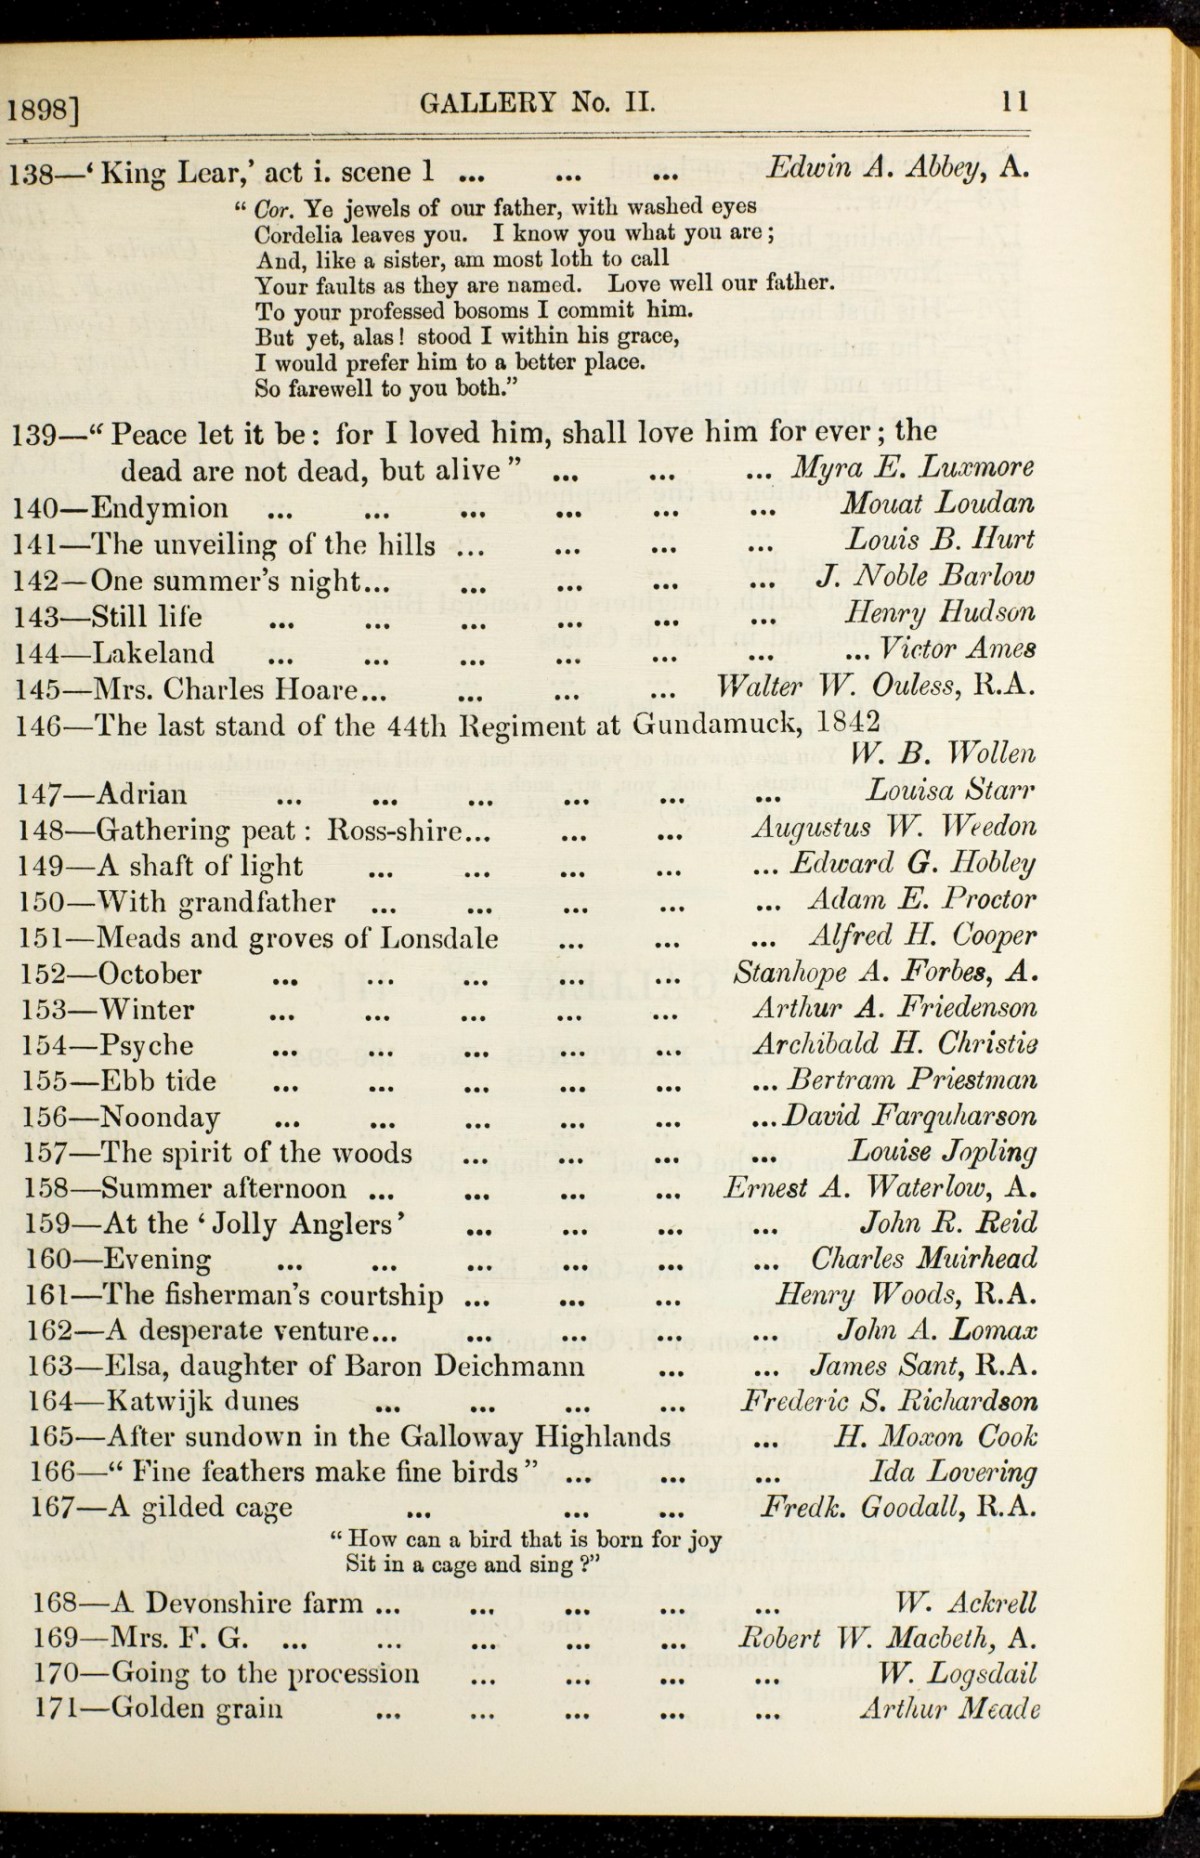 1898] GALLERY No. II. 11
138—‘King Lear,’ act i. scene 1 ... ... ... Edwin A. Abbey, A.
“Cor. Ye jewels of our father, with washed eyes
Cordelia leaves you. I know you what you are;
And, like a sister, am most loth to call
Your faults as they are named. Love well our father.
To your professed bosoms I commit him.
But yet, alas! stood I within his grace,
I would prefer him to a better place.
So farewell to you both.”
139—“Peace let it be: for I loved him, shall love him for ever; the
dead are not dead, but alive” ... ... ... Myra E. Luxmore
140—Endymion ... ... ... ... ... ... Mouat Loudan
141—The unveiling of the hills ... ... ... ... Louis B. Hurt
142—One summer’s night... ... ... ... ... J. Noble Barlow
143—Still life ... ... ... ... ... ... Henry Hudson
144—Lakeland ... ... ... ... ... ... ... Victor Ames
145—Mrs. Charles Hoare... ... ... ... Walter W. Ouless, R.A.
146—The last stand of the 44th Regiment at Gundamuck, 1842
W. B. Wollen
147—Adrian ... ... ... ... ... ... Louisa Starr
148—Gathering peat: Ross-shire... ... ... Augustus W. Weedon
149—A shaft of light ... ... ... ... ... Edward G. Hobley
150—With grandfather ... ... ... ... ... Adam E. Proctor
151—Meads and groves of Lonsdale ... ... ... Alfred H. Cooper
152—October ... ... ... ... ... Stanhope A. Forbes, A.
153—Winter ... ... ... ... ... Arthur A. Friedenson
154—Psyche ... ... ... ... ... Archibald H. Christie
155—Ebb tide ... ... ... ... ... ... Bertram Priestman
156—Noonday ... ... ... ... ... ... David Farquharson
157—The spirit of the woods ... ... ... ... Louise Jopling
158—Summer afternoon ... ... ... ... Ernest A. Waterlow, A.
159—At the ‘Jolly Anglers’ ... ... ... ... John R. Reid
160—Evening ... ... ... ... ... ... Charles Muirhead
161—The fisherman’s courtship ... ... ... Henry Woods, R.A.
162—A desperate venture... ... ... ... ... John A. Lomax
163—Elsa, daughter of Baron Deichmann ... ... James Sant, R.A.
164—Katwijk dunes ... ... ... ... Frederic S. Richardson
165—After sundown in the Galloway Highlands ... H. Moxon Cook
166—“Fine feathers make fine birds” ... ... ... Ida Lovering
167—A gilded cage ... ... ... Fredk. Goodall, R.A.
“How can a bird that is born for joy
Sit in a cage and sing?”
168—A Devonshire farm ... ... ... ... ... W. Ackrell
169—Mrs. F. G. ... ... ... ... ... Robert W. Macbeth, A.
170—Going to the procession ... ... ... ... W. Logsdail
171—Golden grain ... ... ... ... ... Arthur Meade